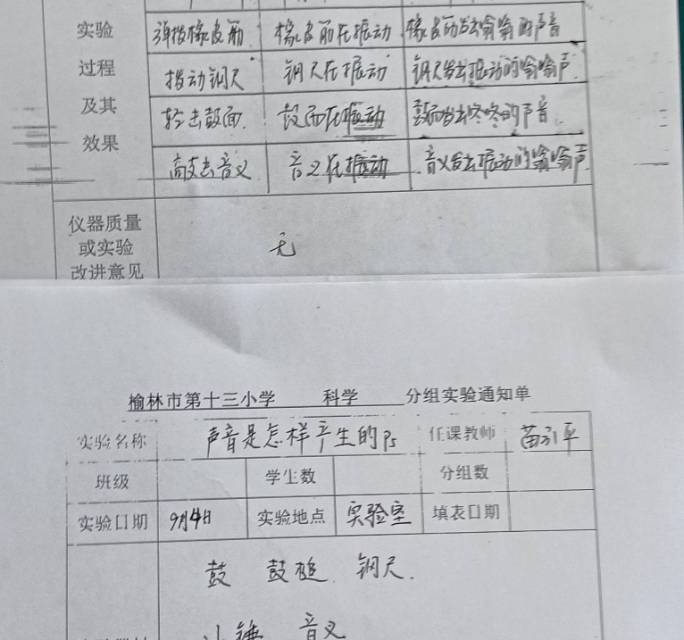 实验 弹拨橡皮筋 橡皮筋在振动 橡皮筋发出嗡嗡的声音
过程 拨动钢尺 钢尺在振动 钢尺发出振动的嗡嗡声
及其 轻击鼓面 鼓面在振动 鼓面发出咚咚的声音
效果 敲击音义 音义在振动 音义发出振动的嗡嗡声
仪器质量
或实验 无
改进意见
榆林市第十三小学 科学 分组实验通知单
实验名称 声音是怎样产生的 P5 任课教师
班级 学生数 分组数
实验日期 9月4日 实验地点 实验室 填表日期
鼓 鼓槌 钢尺.
小锤 音义